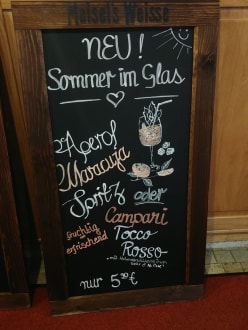 Maisel's Weisse
NEU!
Sommer im Glas
Aperol
Maracuja
Spritz oder
fruchtig Campari
erfrischend Tocco
Rosso
nur 5,90 €